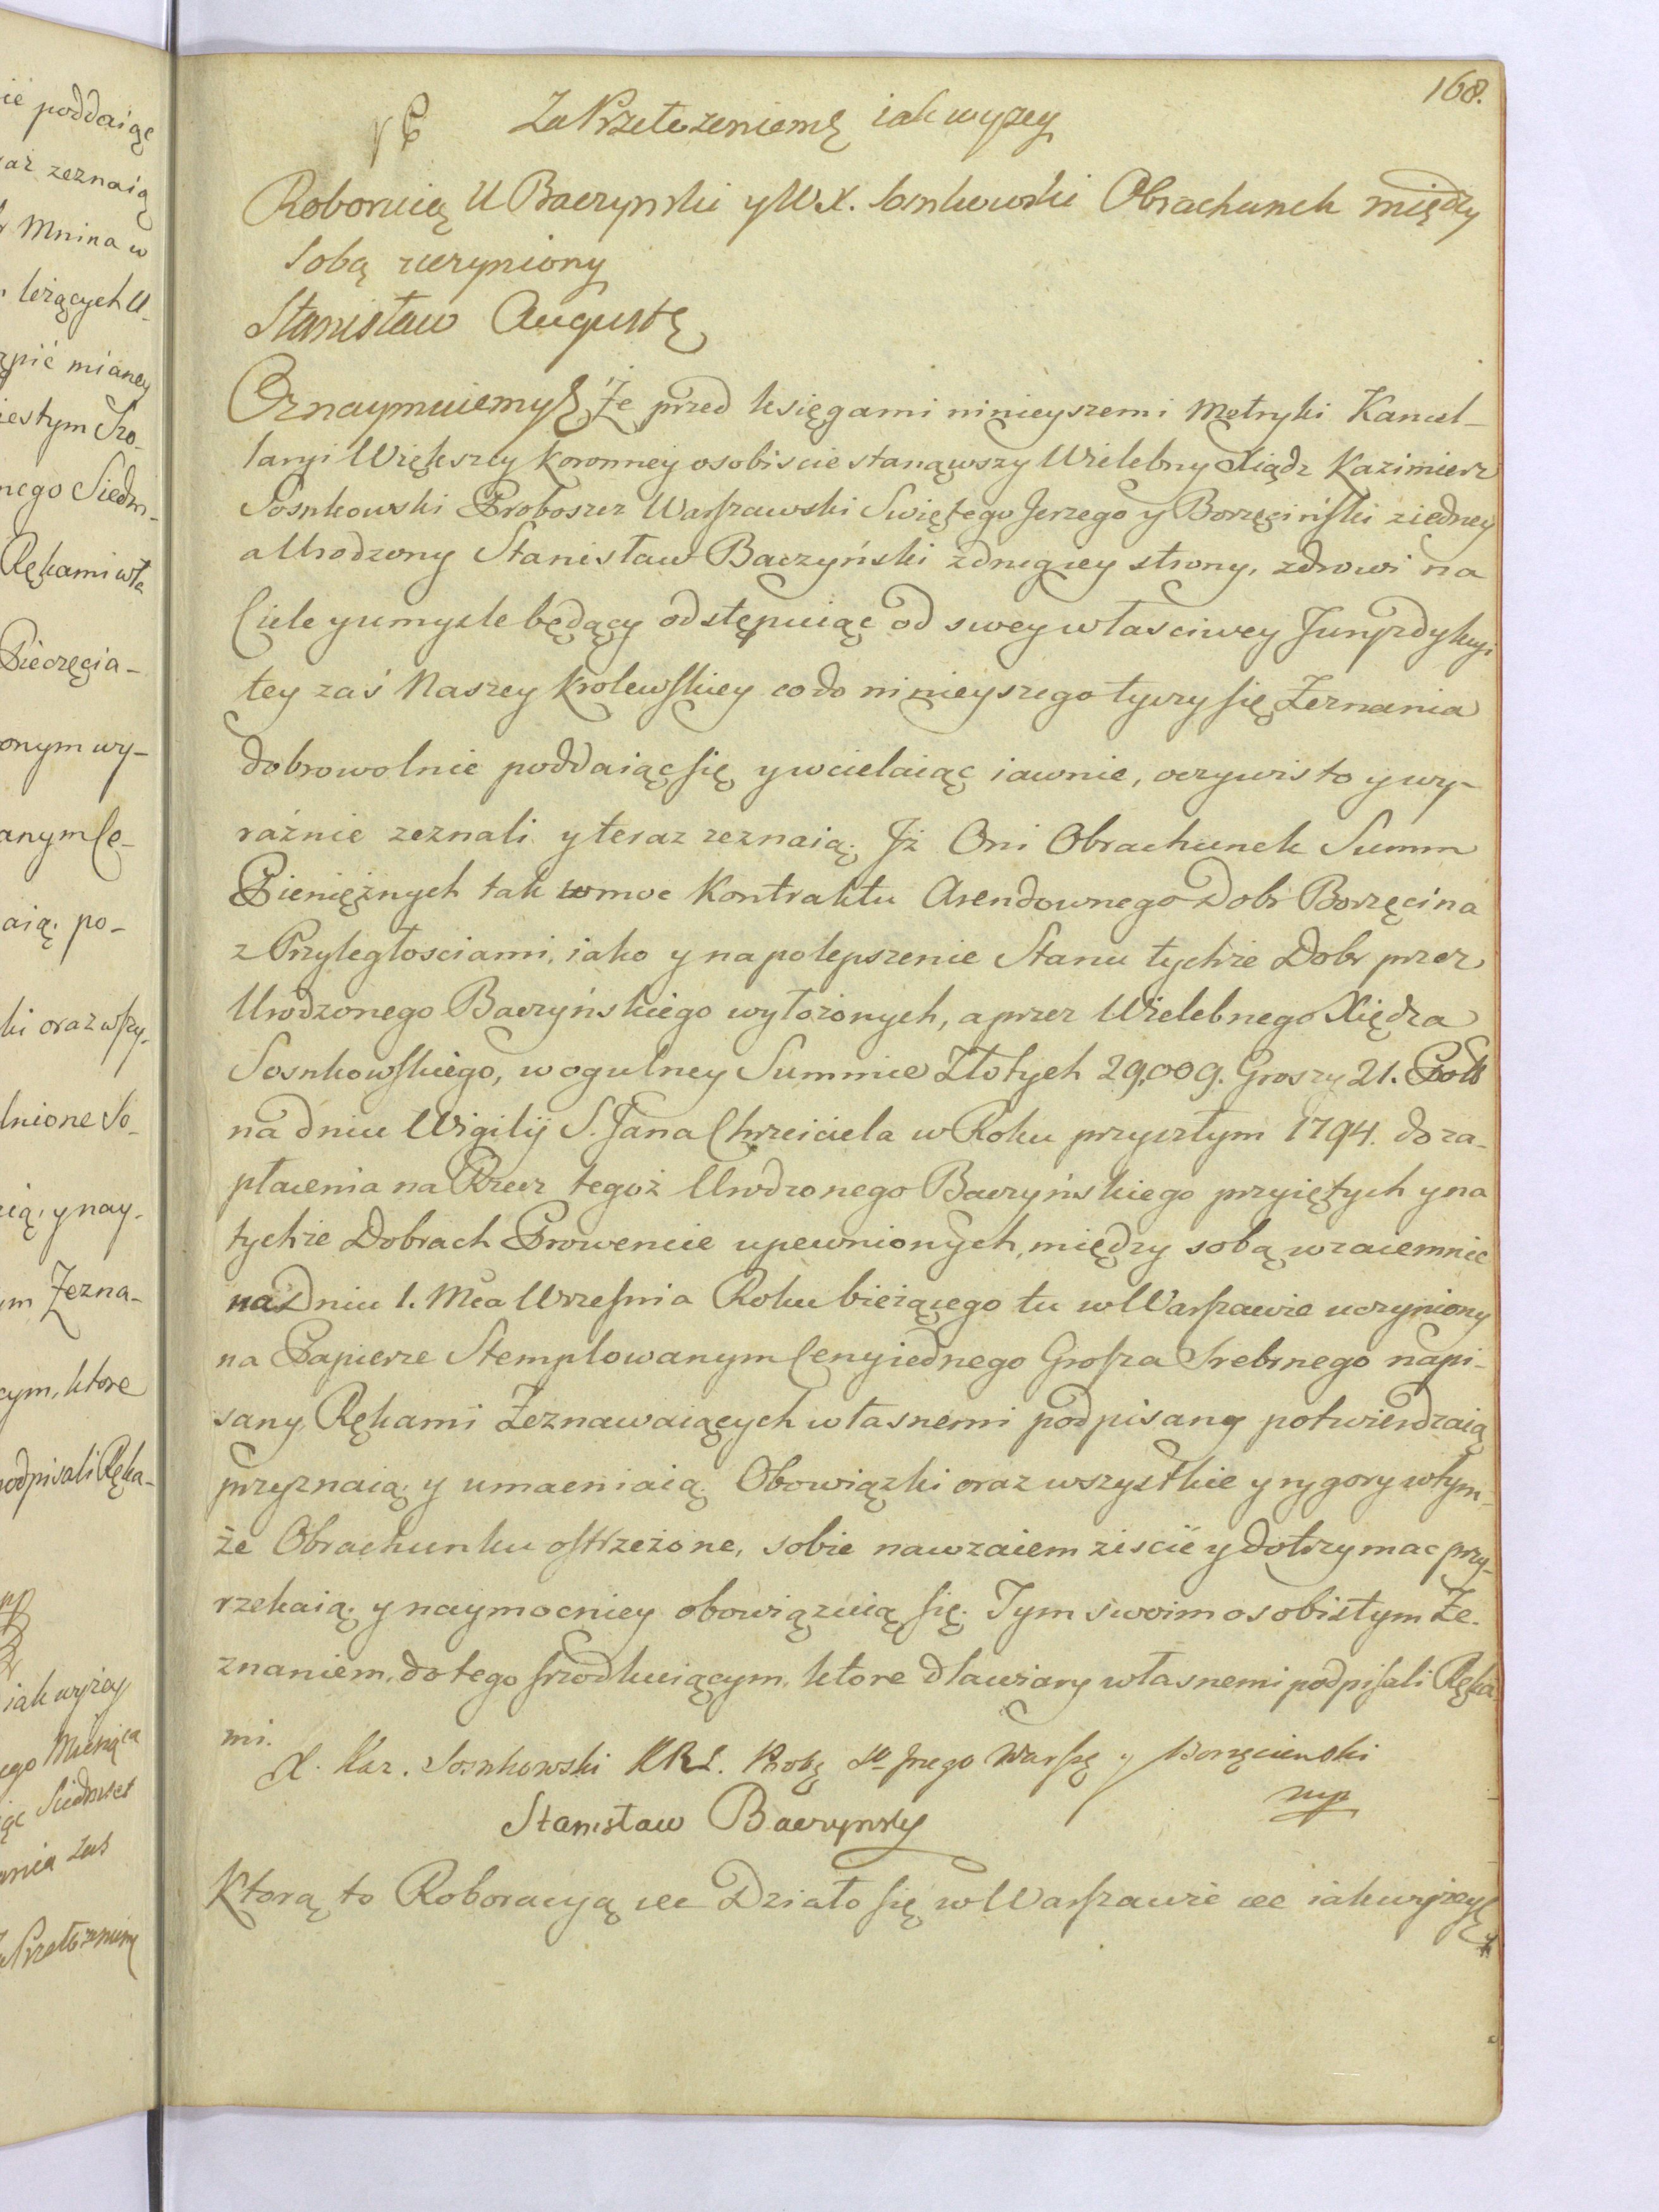 168.
Za Przełożeniem iak wyzey
Roboruią U Baczynski y W X. Sosnkowski Obrachunek między
Sobą uczyniony
Stanisław August
Oznaymuiemy Że przed księgami ninieyszemi Metryki Kancel-
laryi Większey Koronney osobiscie stanąwszy Wielebny Xiądz Kazimierz
Sosnkowski Proboszcz Warszawski Swiętego Jerzego y Borzęciński ziedney
a Urodzony Stanisław Baczyński zdrugiey strony, zdrowi na
Ciele y umyzle będący odstępuiąc od swey własciwey Juryzdykcyi
tey zaś Naszey Krolewskiey co do ninieyszego tyczy się Zeznania
dobrowolnie poddaiąc się y wcielaiąc iawnie, oczywisto y wy-
raźnie zeznali y teraz zeznaią; Jż Oni Obrachunek Summ
Pieniężnych tak wmoc Kontraktu Arendownego Dobr Borzęcina
z Przyległosciami, iako y na polepszenie Stanu tychże Dobr przez
Urodzonego Baczyńskiego wyłożonych, a przez Wielebnego Xiędza
Sosnkowskiego, w ogulney Summie Złotych 29,009. Groszy 21. Poll
na dniu Wigilij S. Jana Chrzciciela w Roku przyszłym 1794. do za-
płacenia na Rzecz tegoż Urodzonego Baczyńskiego przyiętych y na
tychże Dobrach Prowencie upewnionych, między sobą wzaiemnie
na Dniu 1. Mca Wrzesnia Roku bieżącego tu w Warszawie uczyniony
na Papierze Stemplowanym Ceny iednego Grosza Srebrnego napi-
sany, Rękami Zeznawaiących własnemi podpisany potwierdzaią
przyznaią y umacniaią. Obowiązki oraz wszystkie y rygory wtym-
że Obrachunku ostrzeżone, sobie nawzaiem ziscić y dotrzymac przy-
rzekaią y naymocniey obowiązuią się. Tym swoim osobistym Ze-
znaniem, do tego srzodkuiącym, ktore dla wiary własnemi podpisali Ręka
mi.
X. Kaz. Sosnkowski Prob Warsz y Borzęcienski
mp
Stanisław Baczynsky
Ktorą to Roboracyą etc Działo się w Warszawie etc iak wyżey